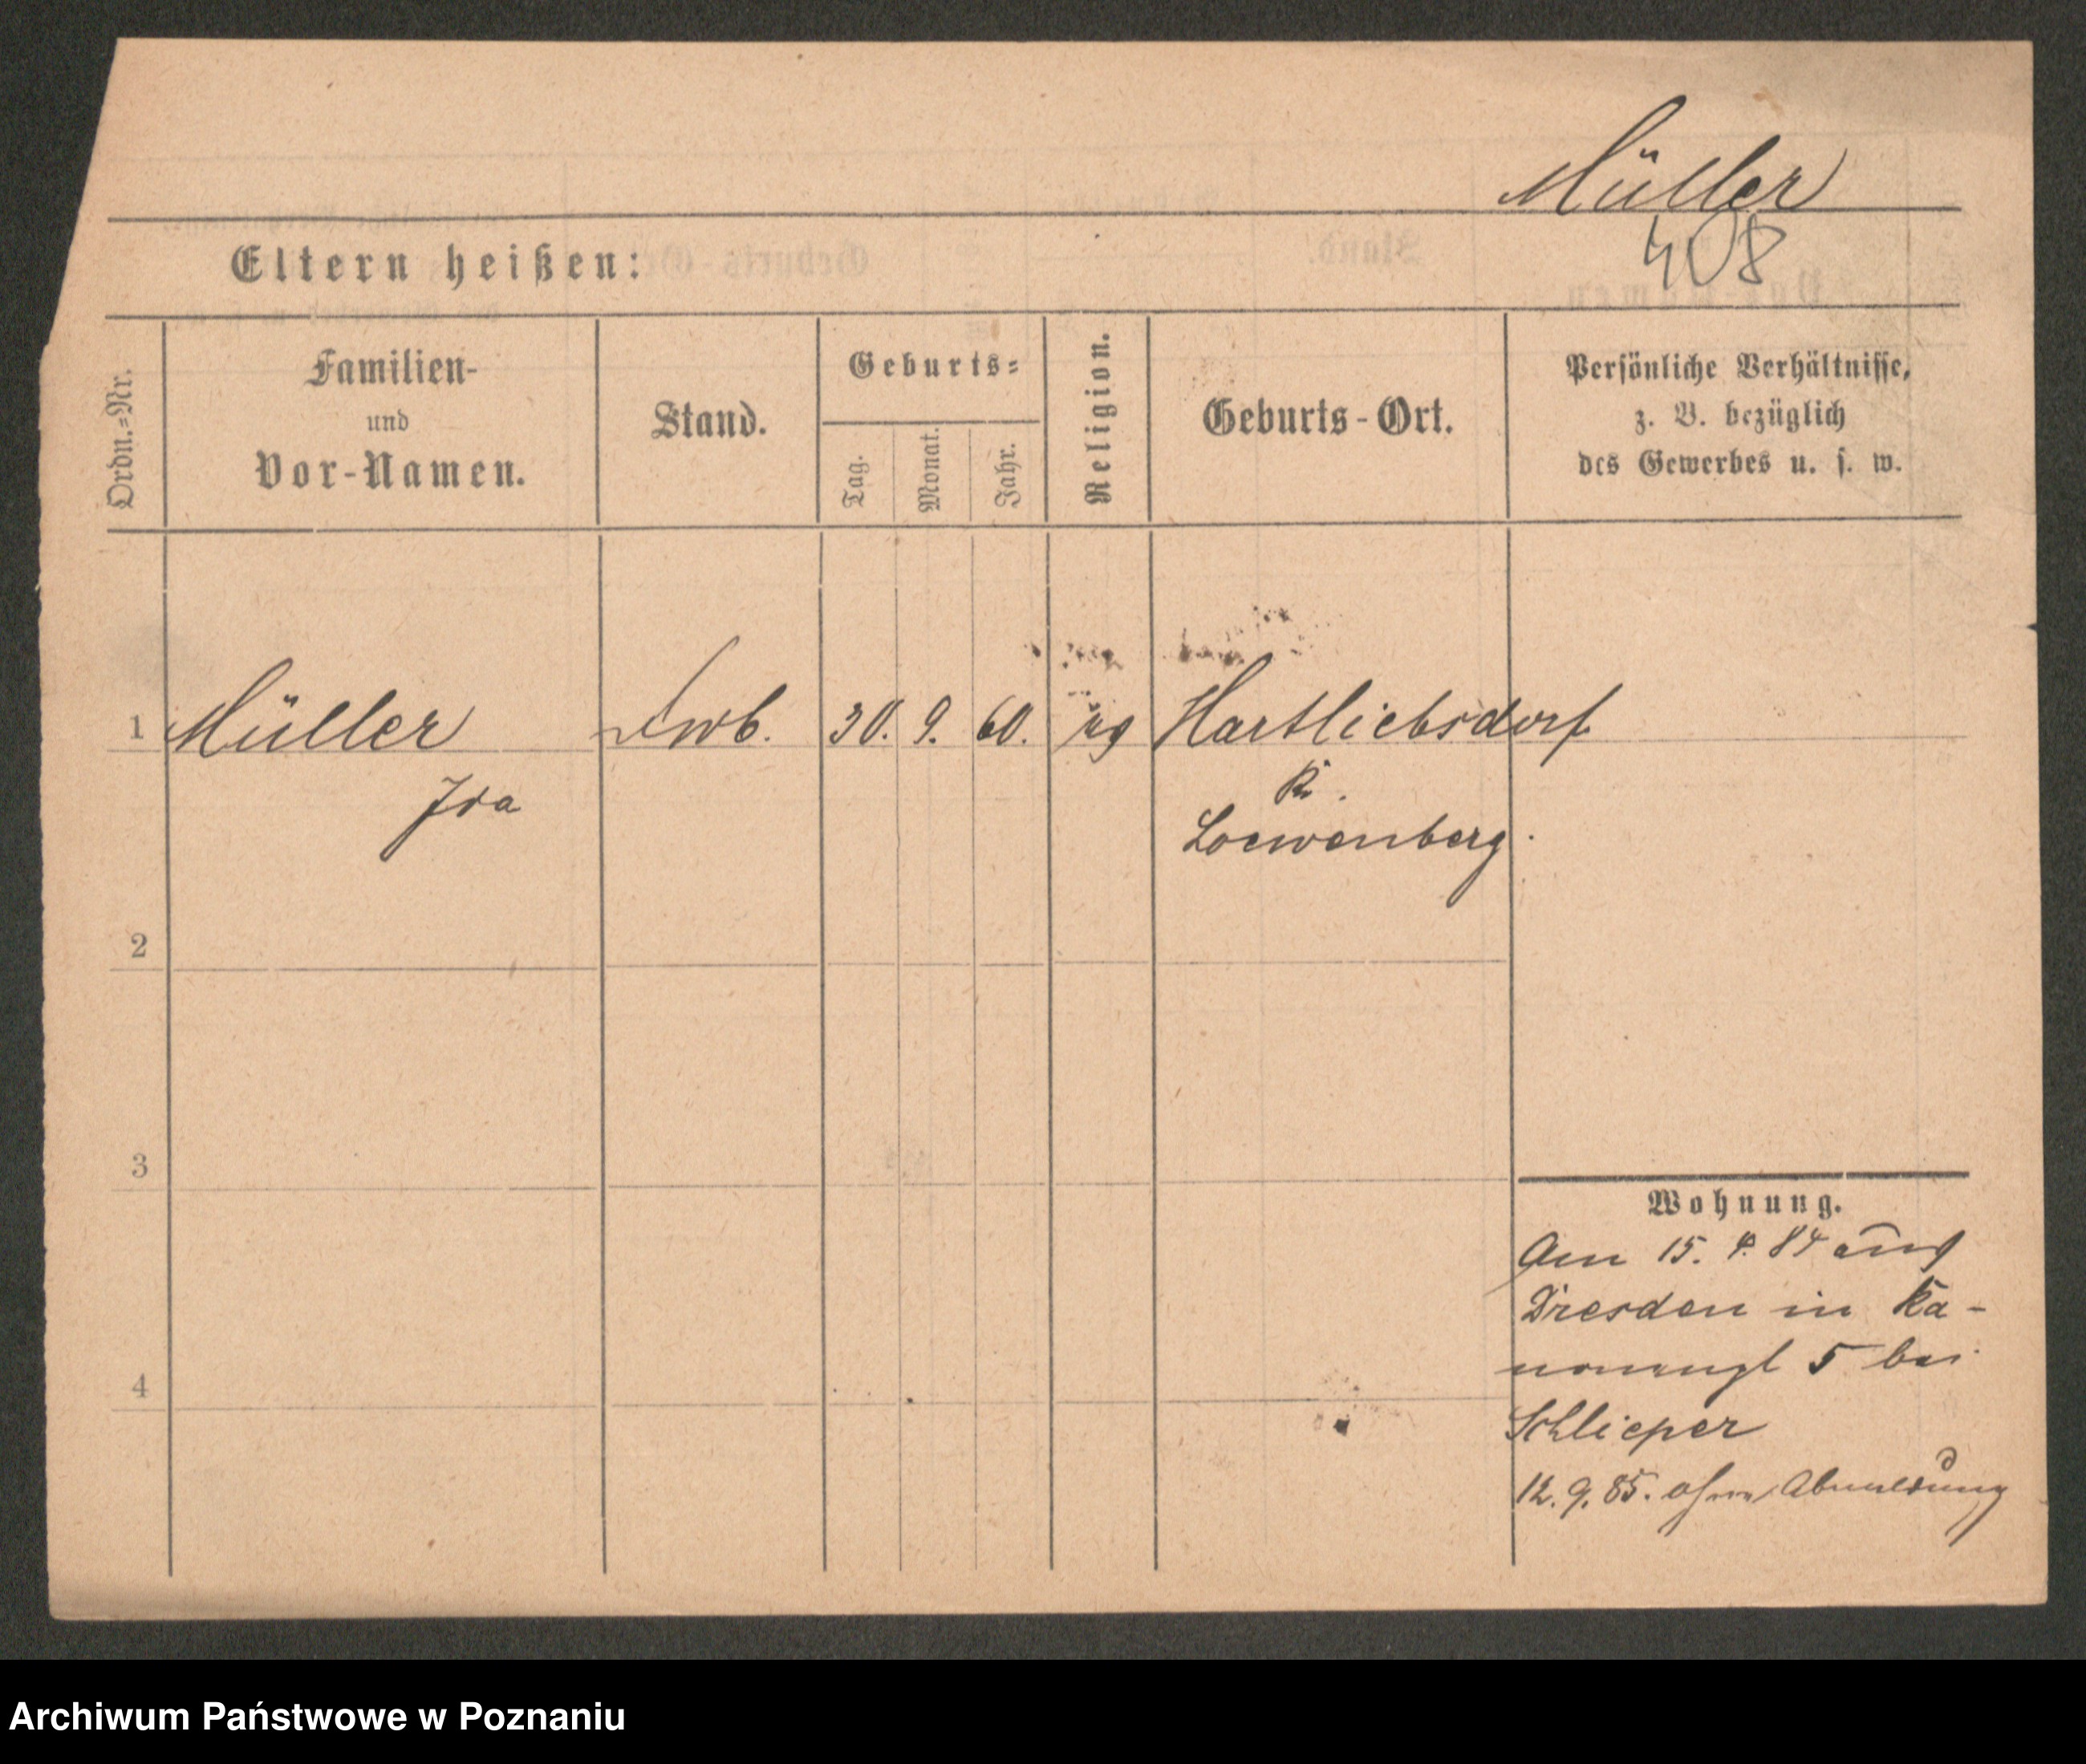 Müller
408
Eltern heißen:
Ordn.-Nr.
Familien-
und
Vor-Namen.
Stand.
Geburts-
Tag.
Monat.
Jahr.
Religion.
Geburts-Ort.
Persönliche Verhältnisse,
z. B. bezüglich
des Gewerbes u. s. w.
1 Müller 30. 9. 60. Hartliebsdorf
Ida
Kr.
Loewenberg.
2
3
4
Wohnung.
Am 15. 4. 84 aus
Dresden in Ka-
nonenpl 5 bei
Schlieper
12. 9. 85. ohne Abmeldung
Archiwum Państwowe w Poznaniu